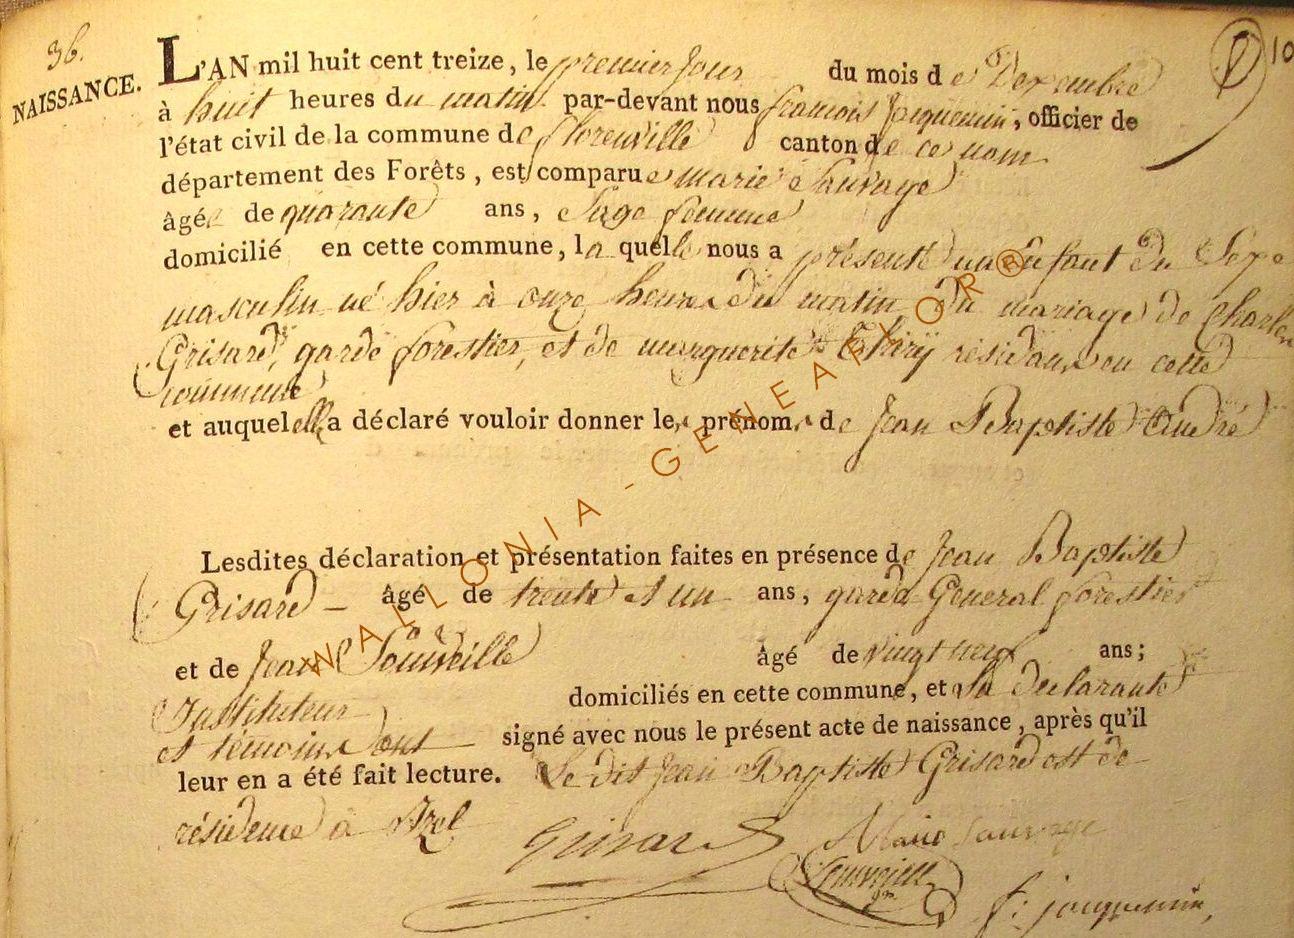 36.
NAISSANCE.
10
L'AN mil huit cent treize, le premier jour du mois de Decembre
à huit heures du matin par-devant nous francois Jacquemin, officier de
l'état civil de la commune de florenville canton de ce nom
département des Forêts, est comparue marie Sauvage
âgée de quarante ans, Sage femme
domicilié en cette commune, la quelle nous a présenté un Enfant du Sexe
masculin né hier à onze heures du matin du mariage de Charles
Grisard, garde forestier, et de marguerite Thiry résidans en cette
commune
et auquel elle a déclaré vouloir donner les prénoms de Jean Baptiste André
Lesdites déclaration et présentation faites en présence de Jean Baptiste
Grisard - âgé de trente et un ans, garde General forestier
et de Jean Souveille âgé de vingt neuf ans;
Instituteur domiciliés en cette commune, et la declarante
et témoins sont signé avec nous le présent acte de naissance, après qu'il
leur en a été fait lecture. Le dit Jean Baptiste Grisard est de
résidence à Izel
Grisard Marie Sauvage
Souveille
f: jacquemin,
WALLONIA-GENEAFLOR®